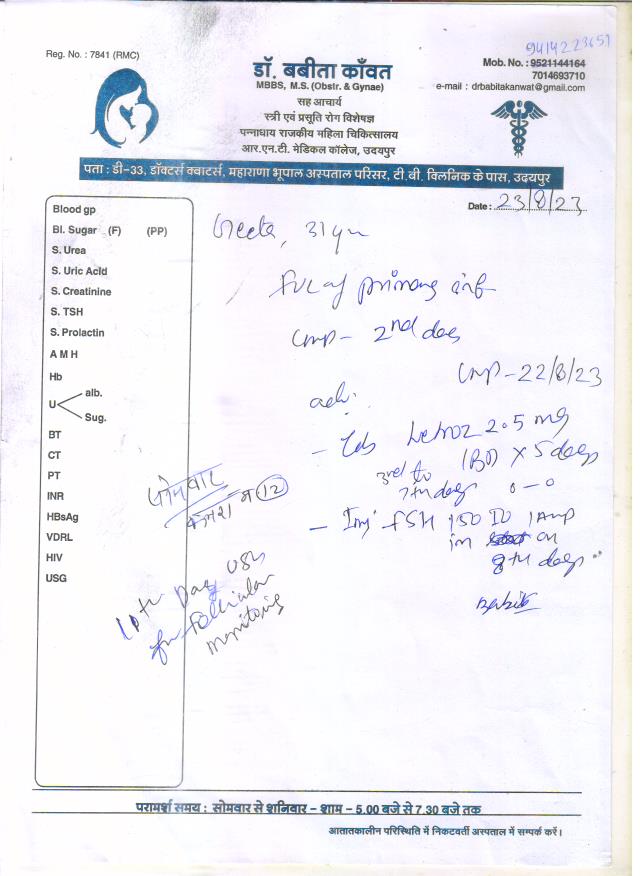 9414223651
Reg. No. : 7841 (RMC)
डॉ. बबीता काँवत
MBBS, M.S. (Obstr. & Gynae)
सह आचार्य
स्त्री एवं प्रसूति रोग विशेषज्ञ
पन्नाधाय राजकीय महिला चिकित्सालय
आर.एन.टी. मेडिकल कॉलेज, उदयपुर
Mob. No. : 9521144164
7014693710
e-mail : drbabitakanwat@gmail.com
पता : डी-33, डॉक्टर्स क्वाटर्स, महाराणा भूपाल अस्पताल परिसर, टी.बी. क्लिनिक के पास, उदयपुर
Date : 23/8/23
Blood gp
Bl. Sugar (F) (PP)
S. Urea
S. Uric Acid
S. Creatinine
S. TSH
S. Prolactin
A M H
Hb
U alb.
Sug.
BT
CT
PT
INR
HBsAg
VDRL
HIV
USG
Geeta, 31yr
primary inf
LMP - 2nd day
LMP - 22/8/23
adv.
- Tab Letroz 2.5 mg
1BD x 5 days
3rd to
7th day 0-0
- Inj FSH 150 IU 1 Amp
im on
8th day
सोमवार
कमरा न 12
10th Day USG
for Follicular
monitoring
परामर्श समय : सोमवार से शनिवार – शाम – 5.00 बजे से 7.30 बजे तक
आतातकालीन परिस्थिति में निकटवर्ती अस्पताल में सम्पर्क करें।